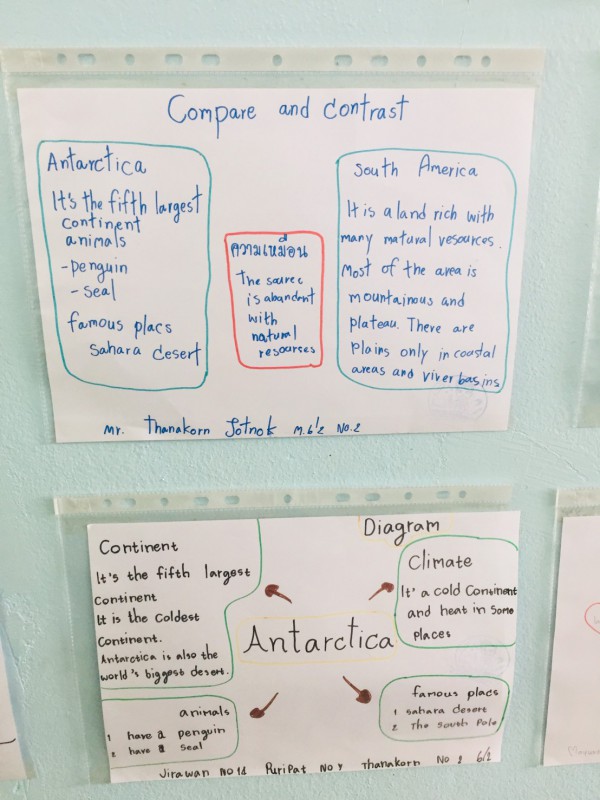 Compare and Contrast
Antarctica
It's the fifth largest
continent
animals
-penguin
-seal
famous placs
Sahara desert
ความเหมือน
The source
is abandent
with
natural
resourses
South America
It is a land rich with
many natural resources.
Most of the area is
mountainous and
plateau. There are
Plains only in coastal
areas and river basins
Mr. Thanakorn Jotnok M.6/2 No.2
Diagram
Continent
It's the fifth largest
Continent
It is the Coldest
Continent.
Antarctica is also the
world's biggest desert.
Climate
It' a cold Continent
and heat in Some
places
Antarctica
animals
1 have a penguin
2 have a seal
famous placs
1 sahara desert
2 The South Pole
Jirawan No 18 Puripat No 4 Thanakorn No 2 6/2